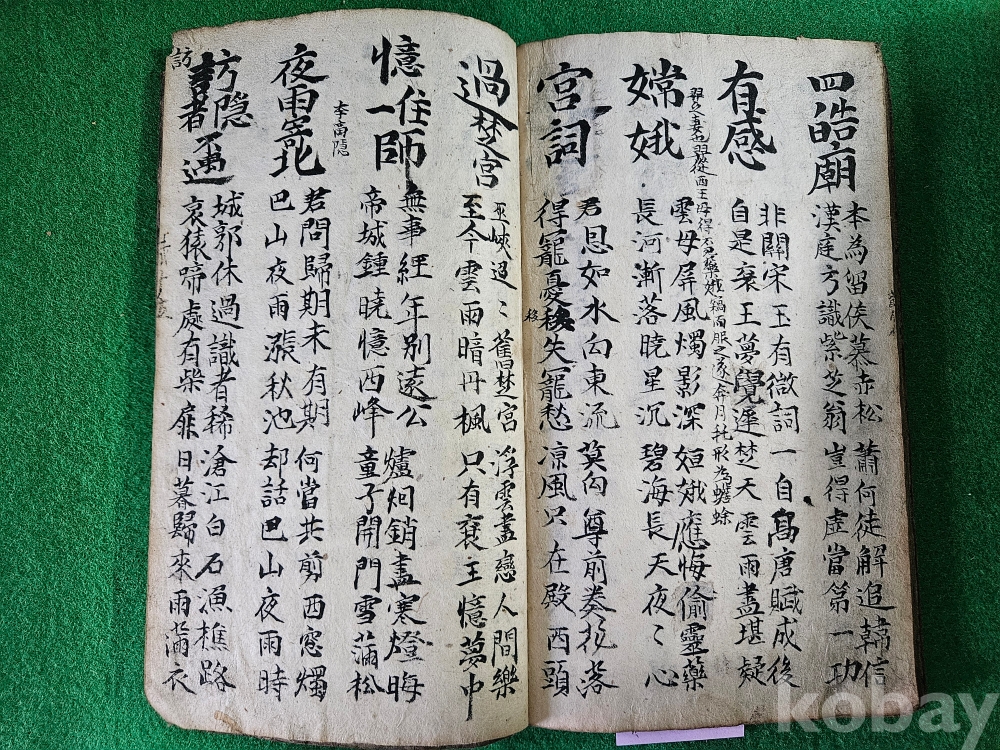 四皓廟
本為留侯慕赤松
漢庭方識紫芝翁
蕭何徒解追韓信
豈得虛當第一功
有感
非關宋玉有微詞
自是襄王夢覺遲
一自高唐賦成後
楚天雲雨盡堪疑
嫦娥
羿之妻也羿從西王母得不死藥娥竊而服之遂奔月托形為蟾蜍
雲母屏風燭影深
長河漸落曉星沉
姮娥應悔偷靈藥
碧海長天夜〻心
宮詞
君恩如水向東流
得寵憂移失寵愁
移
莫向尊前奏花落
凉風只在殿西頭
過楚宮
巫峽迢〻舊楚宮
至今雲雨暗丹楓
浮雲盡戀人間樂
只有襄王憶夢中
憶住一師
無事經年別遠公
帝城鍾曉憶西峰
爐烟銷盡寒燈晦
童子開門雪滿松
夜雨寄北
李商隐
君問歸期未有期
巴山夜雨漲秋池
何當共剪西窓燭
却話巴山夜雨時
訪
訪隐者不遇
城郭休過識者稀
哀猿啼處有柴扉
滄江白石漁樵路
日暮歸來雨滿衣
kobay